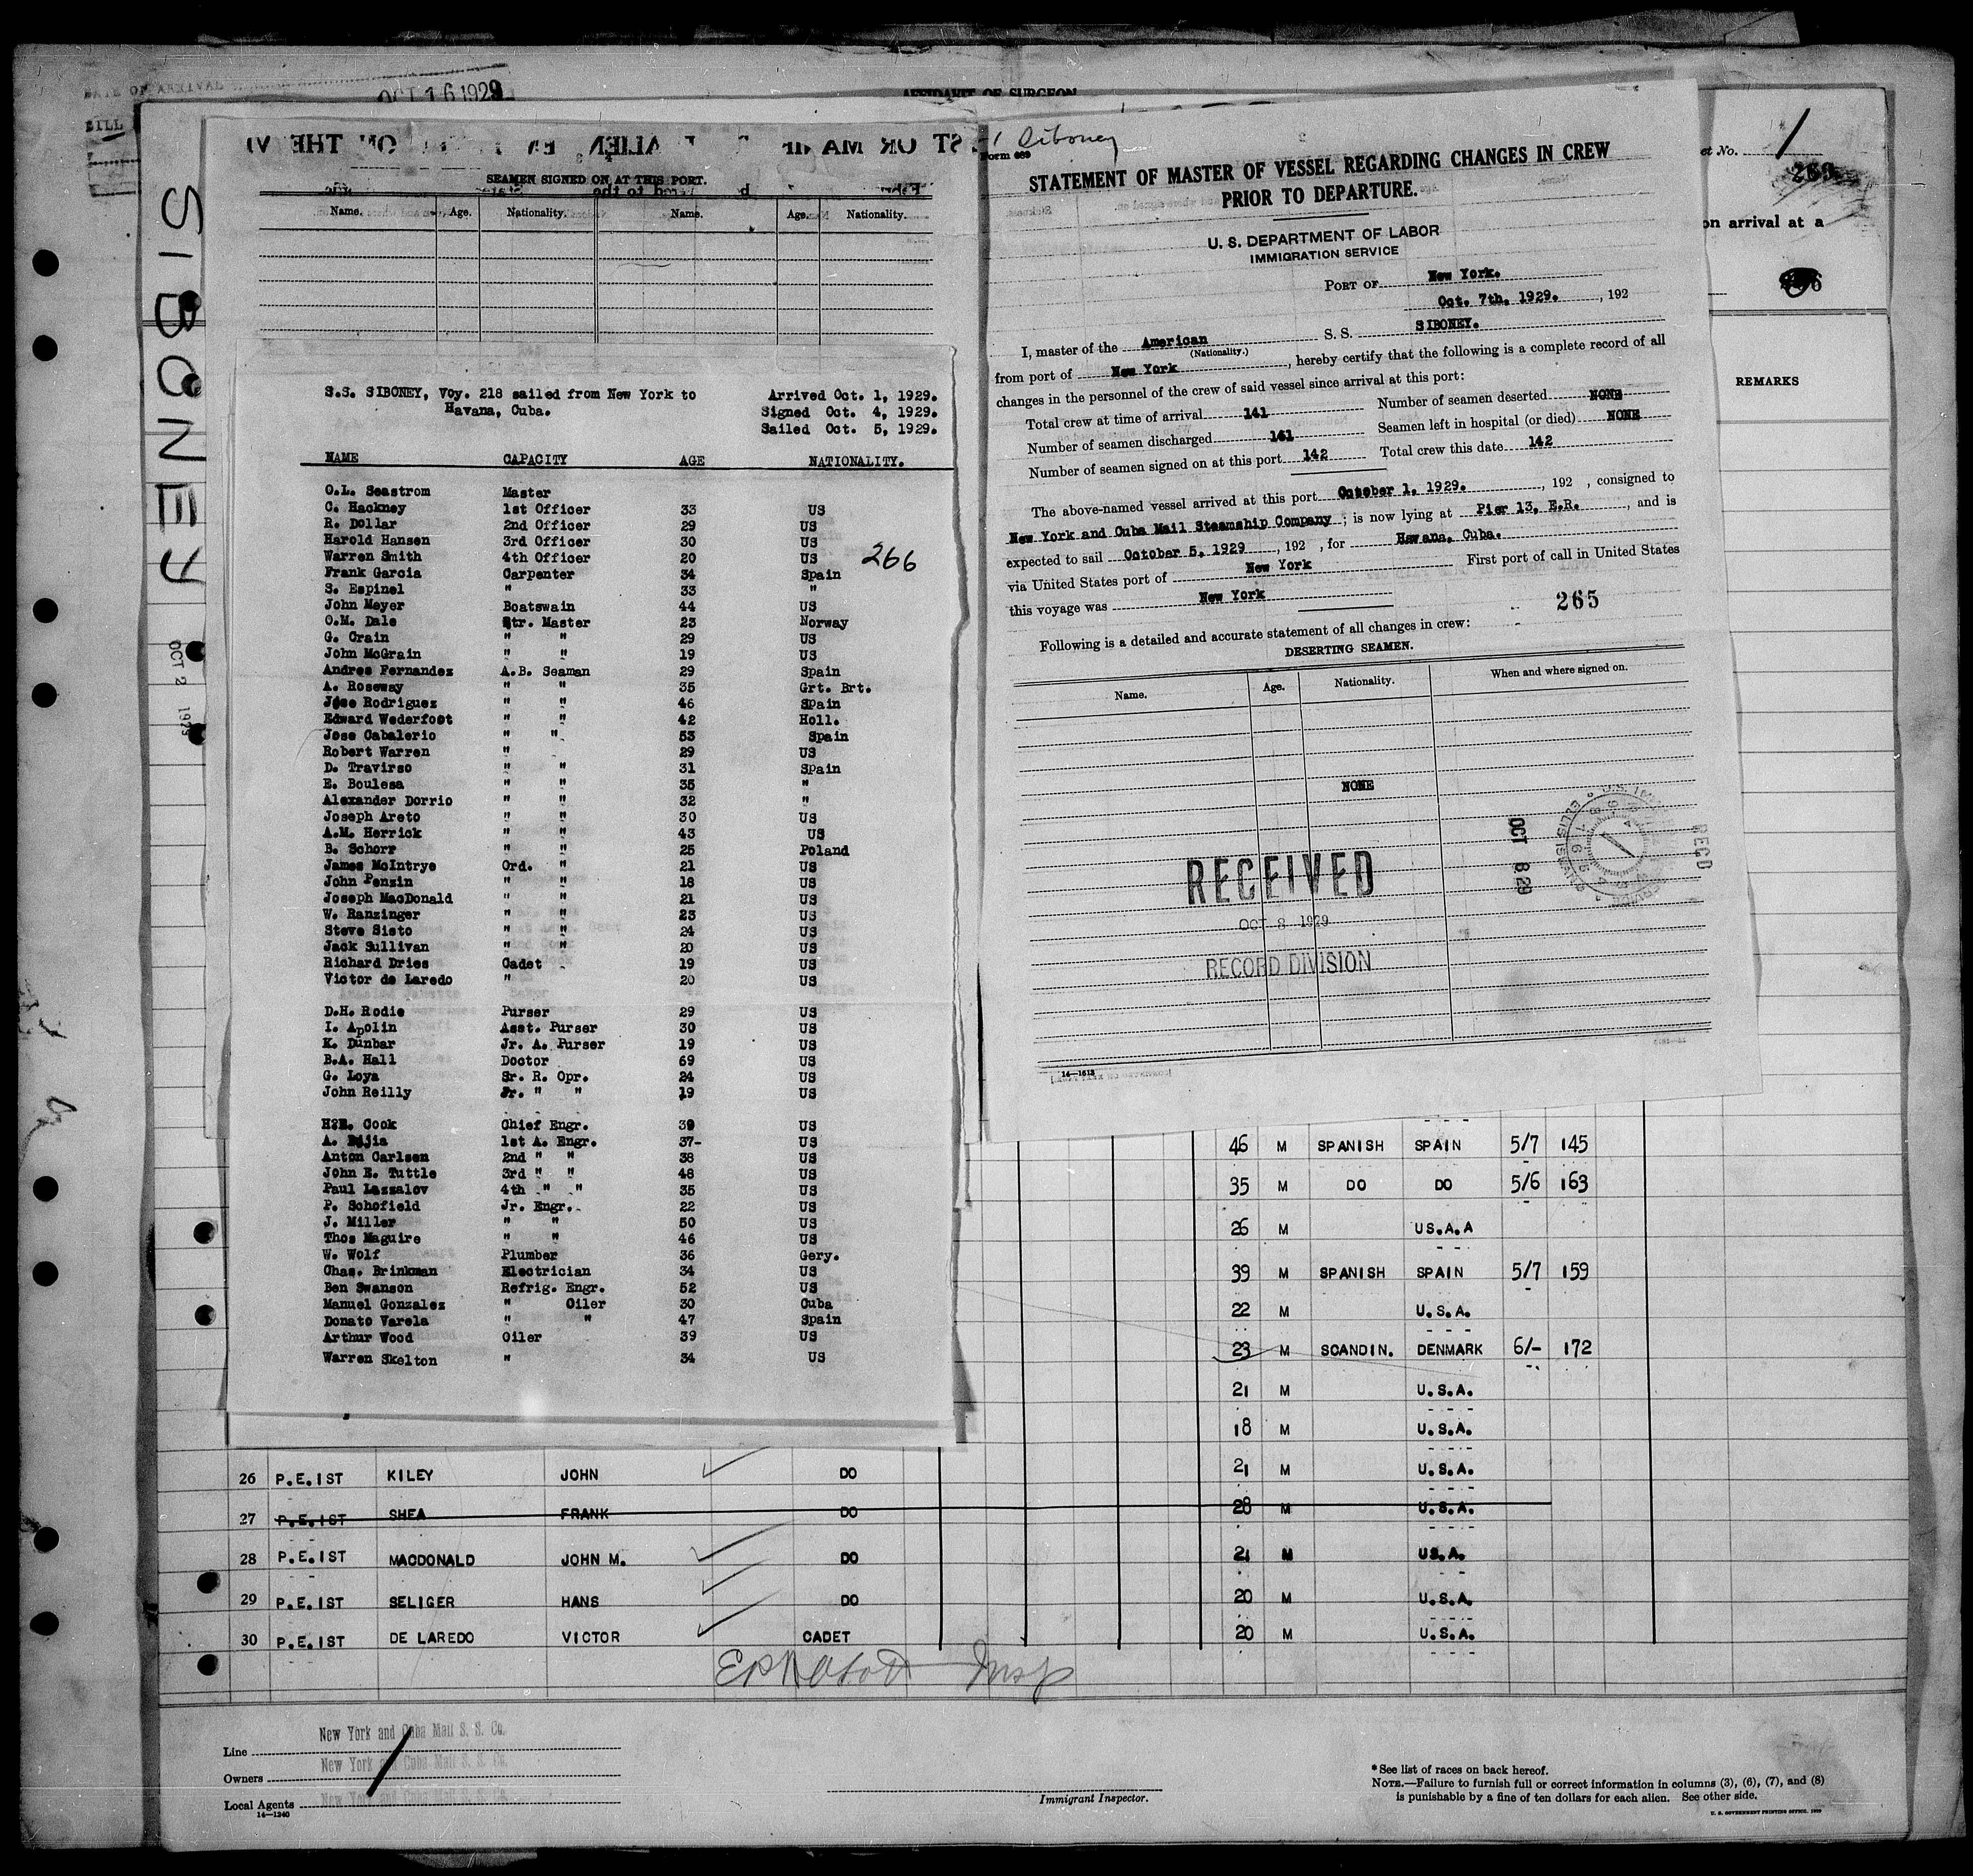 OCT 16 1929
AFFIDAVIT OF SURGEON
SIBONEY
OCT 2 1929
SEAMEN SIGNED ON AT THIS PORT.
Name. Age. Nationality. Name. Age. Nationality.
S.S. SIBONEY, Voy. 218 sailed from New York to Arrived Oct. 1, 1929.
Havana, Cuba. Signed Oct. 4, 1929.
Sailed Oct. 5, 1929.
NAME CAPACITY AGE NATIONALITY.
O.L. Seastrom Master
C. Hackney 1st Officer 33 US
R. Dollar 2nd Officer 29 US
Harold Hansen 3rd Officer 30 US
Warren Smith 4th Officer 20 US
266
Frank Garcia Carpenter 34 Spain
S. Espinel " 33 "
John Meyer Boatswain 44 US
O.M. Dale Qtr. Master 23 Norway
G. Crain " " 29 US
John McGrain " " 19 US
Andres Fernandez A.B. Seaman 29 Spain
A. Roseway " " 35 Grt. Brt.
Jose Rodriguez " " 46 Spain
Edward Wederfoot " " 42 Holl.
Jose Cabalerio " " 53 Spain
Robert Warren " 29 US
D. Travirso " " 31 Spain
E. Boulesa " " 35 "
Alexander Dorrio " " 32 "
Joseph Areto " " 30 US
A.M. Herrick " " 43 US
B. Schorr " " 25 Poland
James McIntrye Ord. " 21 US
John Penzin " " 18 US
Joseph MacDonald " " 21 US
W. Ranzinger " " 23 US
Steve Sisto " " 24 US
Jack Sullivan " " 20 US
Richard Dries Cadet 19 US
Victor de Laredo " 20 US
D.H. Rodie Purser 29 US
I. Apolin Asst. Purser 30 US
K. Dunbar Jr. A. Purser 19 US
B.A. Hall Doctor 69 US
G. Loya Sr. R. Opr. 24 US
John Reilly Jr. " " 19 US
Cook Chief Engr. 39 US
A. 1st A. Engr. 37- US
Anton Carlsen 2nd " " 38 US
John E. Tuttle 3rd " " 48 US
Paul Lazzalov 4th " " 35 US
P. Schofield Jr. Engr. 22 US
J. Miller " " 50 US
Thos Maguire " " 46 US
W. Wolf Plumber 36 Gery.
Chas. Brinkman Electrician 34 US
Ben Swanson Refrig. Engr. 52 US
Manuel Gonzalez " Oiler 30 Cuba
Donato Varela " " 47 Spain
Arthur Wood Oiler 39 US
Warren Skelton " 34 US
Siboney
Form 689
STATEMENT OF MASTER OF VESSEL REGARDING CHANGES IN CREW
PRIOR TO DEPARTURE.
U. S. DEPARTMENT OF LABOR
IMMIGRATION SERVICE
PORT OF New York.
Oct. 7th. 1929. , 192
I, master of the American S. S. SIBONEY.
(Nationality.)
from port of New York , hereby certify that the following is a complete record of all
changes in the personnel of the crew of said vessel since arrival at this port:
Total crew at time of arrival 141 Number of seamen deserted NONE
Number of seamen discharged 141 Seamen left in hospital (or died) NONE
Number of seamen signed on at this port 142 Total crew this date 142
The above-named vessel arrived at this port October 1, 1929. , 192 , consigned to
New York and Cuba Mail Steamship Company ; is now lying at Pier 13, E.R. , and is
expected to sail October 5, 1929 , 192 , for Havana, Cuba.
via United States port of New York First port of call in United States
this voyage was New York
265
Following is a detailed and accurate statement of all changes in crew:
DESERTING SEAMEN.
Name. Age. Nationality. When and where signed on.
NONE
RECEIVED
OCT 8 1929
RECORD DIVISION
OCT 8 29
REC'D
14—1613
et No. 1
on arrival at a
REMARKS
46 M SPANISH SPAIN 5/7 145
35 M DO DO 5/6 163
26 M US.A.A
39 M SPANISH SPAIN 5/7 159
22 M U.S.A.
23 M SCANDIN. DENMARK 6/- 172
21 M U.S.A.
18 M U.S.A.
26 P.E.IST KILEY JOHN DO 21 M U.S.A.
27 P.E.IST SHEA FRANK DO 28 M U.S.A.
28 P.E.IST MACDONALD JOHN M. DO 21 M US.A.
29 P.E.IST SELIGER HANS DO 20 M U.S.A.
30 P.E.IST DE LAREDO VICTOR CADET 20 M U.S.A.
Insp
Line New York and Cuba Mail S. S. Co.
Owners New York and Cuba Mail S. S. Co.
Local Agents New York and Cuba Mail S. S. Co.
14—1240
Immigrant Inspector.
*See list of races on back hereof.
NOTE.—Failure to furnish full or correct information in columns (3), (6), (7), and (8)
is punishable by a fine of ten dollars for each alien. See other side.
U. S. GOVERNMENT PRINTING OFFICE: 1929